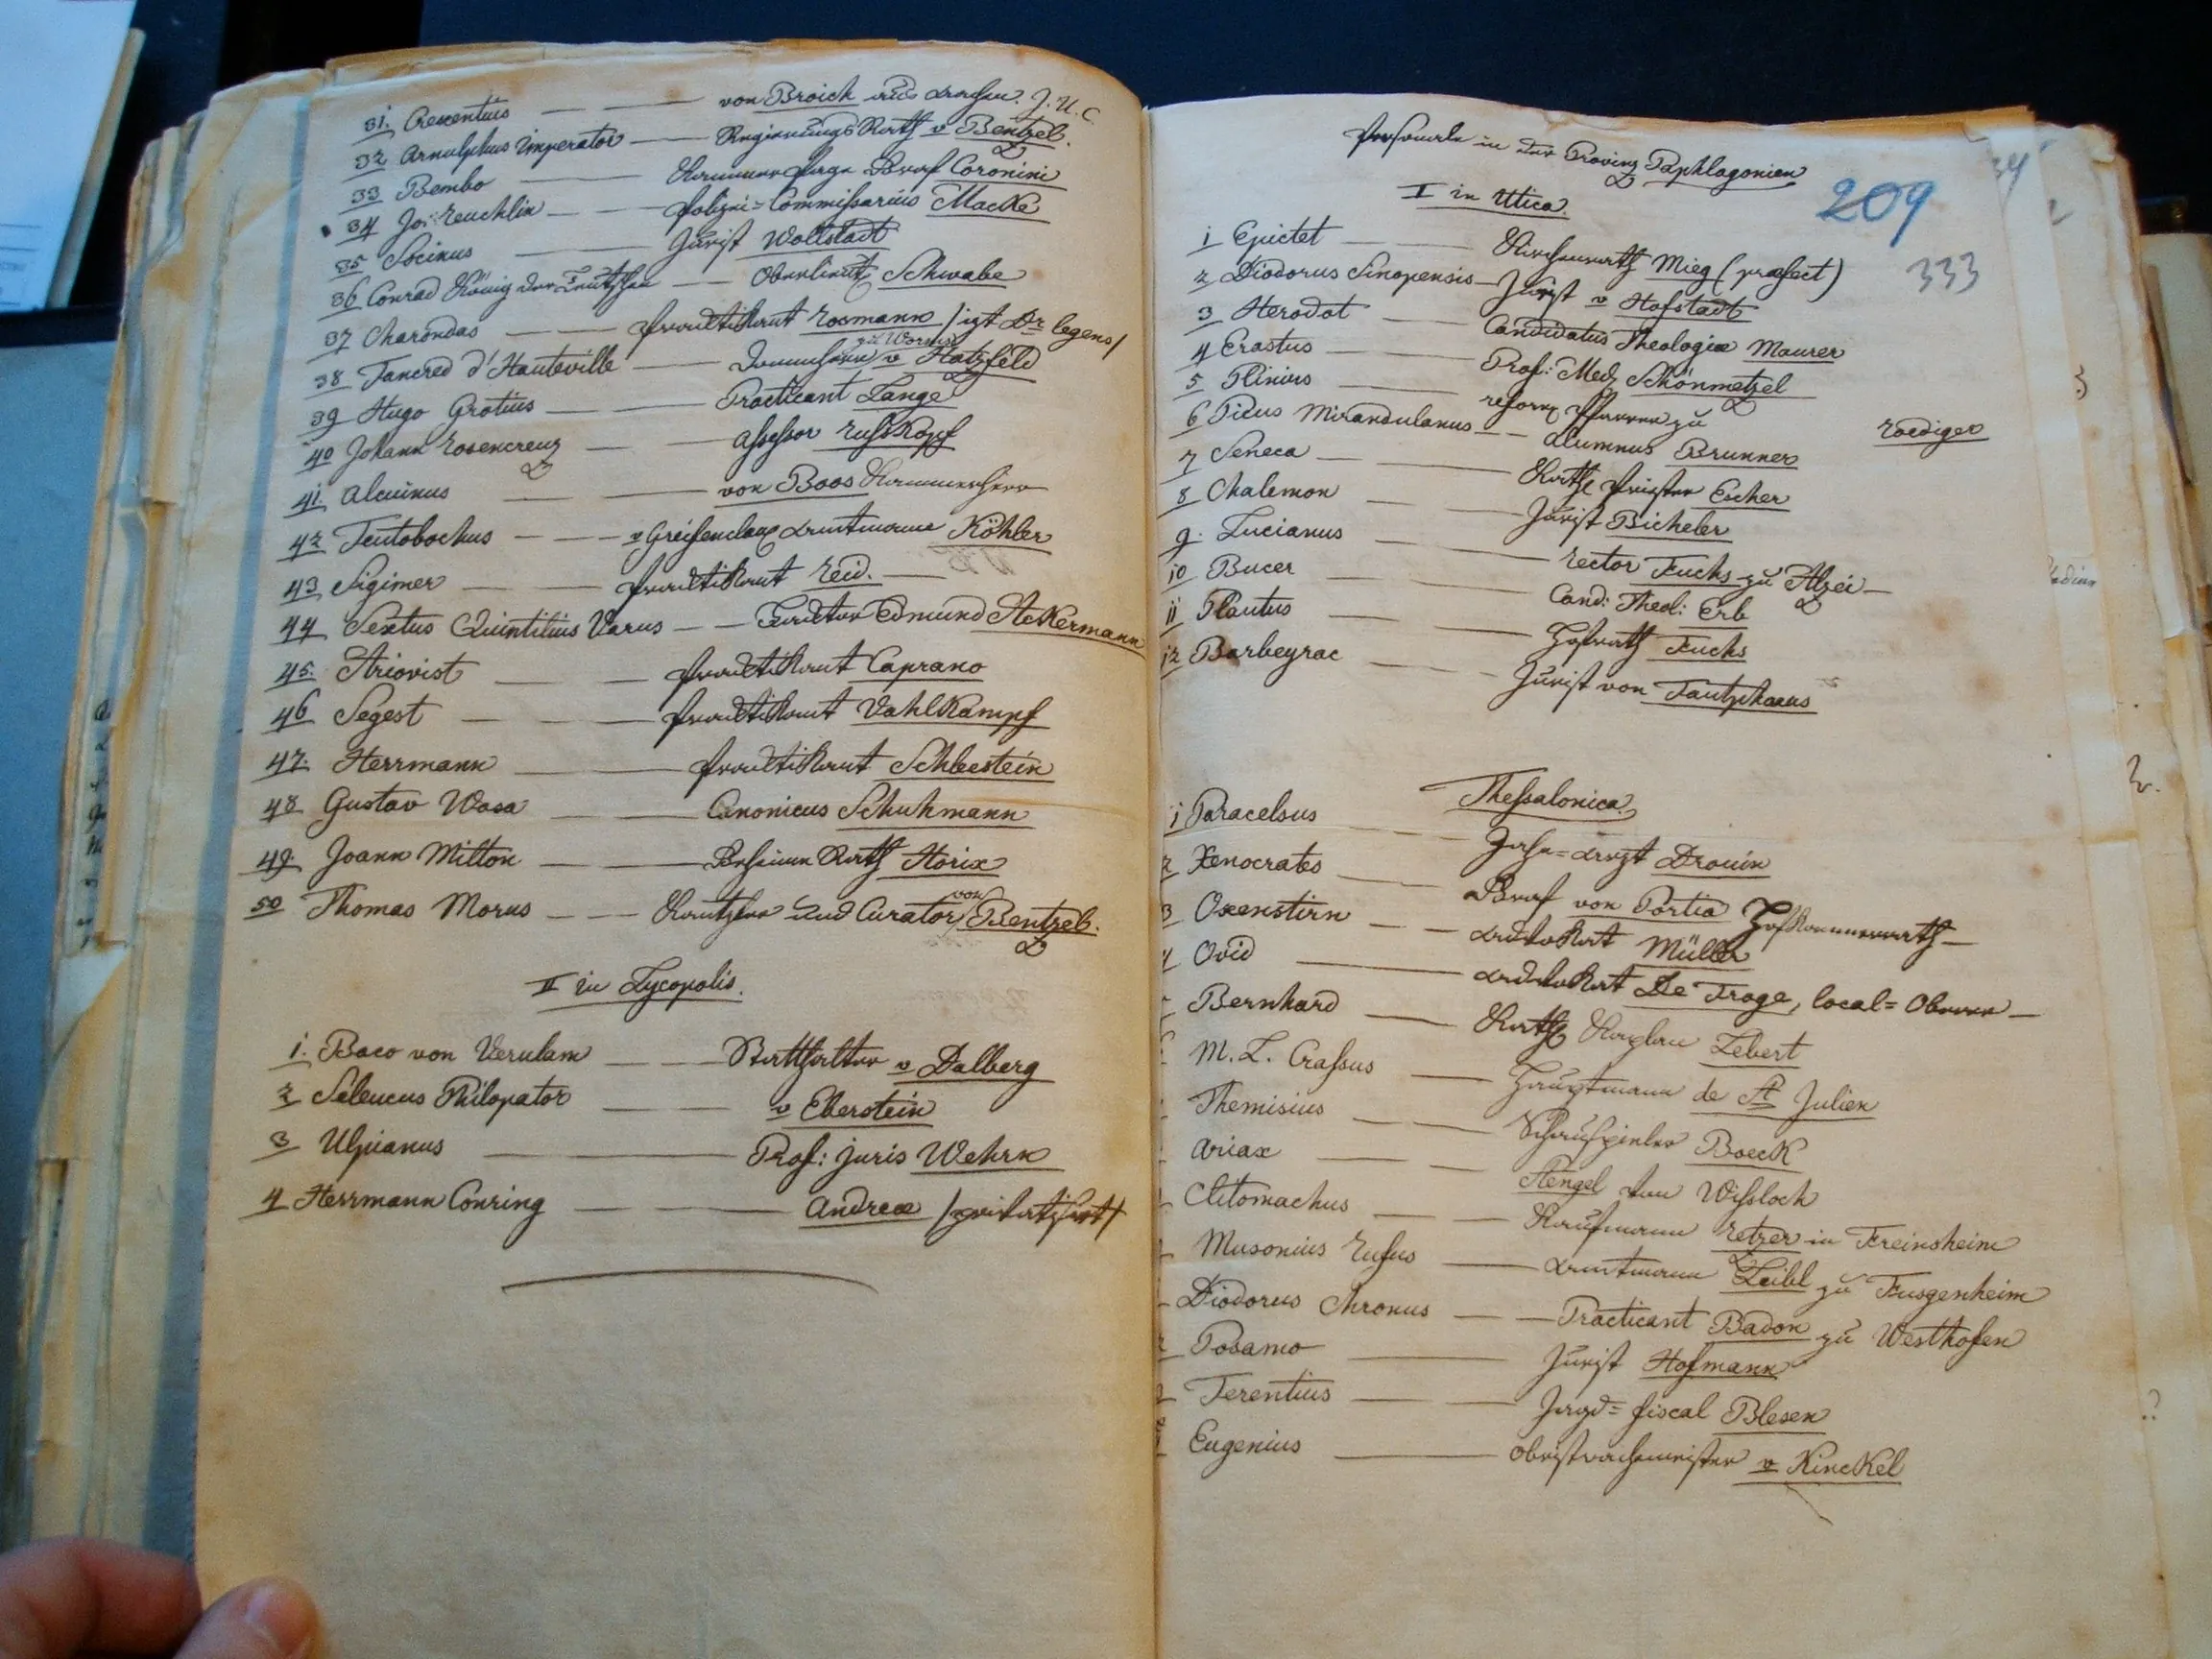 31. Crescentius — — von Broich aus Aachen. J. U. C.
32 Arnulphus Imperator — Regierungs Rath v Bentzel.
33 Bembo — Kammer Page Graf Coronini
34 Jo: Reuchlin — — Polizei=Commissarius Macke
35 Socinus — Jurist Wollstadt
36 Conrad König der Teutschen — — Oberlieut Schwabe
37 Charondas — — Practikant Rosmann /izt Dr legens/
zu Worms
38 Tancred d'Hauteville — Domherr v Hatzfeld
39 Hugo Grotius — — Practicant Lange
40 Johann Rosencreuz — — Assessor Russkopf
41. Alcuinus — — von Boos Kammerherr
42 Teutobochus — — v Greifenclau Amtmann Köhler
43 Sigimer — — Practikant Reid. —
44 Sextus Quintilius Varus — — Factor Edmund Ackermann
45. Ariovist — — Practikant Caprano
46 Segest — — Practikant Vahlkampf
47. Herrmann — — Practikant Schleestein
48 Gustav Wasa — — Canonicus Schuhmann
49. Joann Milton — — Geheime Rath Horix
50 Thomas Morus — — Kantzler und Curator von Bentzel.
II in Lycopolis.
1. Baco von Verulam — — Statthalter v Dalberg
2 Seleucus Philopator — — v Eberstein
3 Ulpianus — Prof: juris Wehrn
4 Herrmann Conring — — Andreæ /privatisirt/
Personale in der Provinz Paphlagonien
209
I in Utica.
333
1 Epictet — — Kirchenrath Mieg (præfect)
2 Diodorus Sinopensis — Jurist v Hofstadt
3 Herodot — Candidatus Theologiæ Maurer
4 Erastus — Prof: Med. Schönmetzel
5 Plinius — reform Pfarrer zu
Roediger
6 Picus Mirandulanus — — Alumnus Brunner
7 Seneca — — Kath Priester Escher
8 Chalemon — — Jurist Bicheler
9. Lucianus — — Rector Fuchs zu Alzei —
10 Bucer — — Cand: Theol: Erb
11 Plautus — — Hofrath Fuchs
12 Barbeyrac — — Jurist von Tautphaeus
Thessalonica
1 Paracelsus — — Zahn=Arzt Drouin
2 Xenocrates — — Graf von Portia Hofkammerrath —
3 Oxenstirn — — Advokat Müller
4 Ovid — Advokat De Troge, local=Oberer —
Bernhard — Kath Kaplan Lebert
M. L. Crassus — Hauptmann de St Julien
Themisius — — Schauspieler Boeck
Ariax — — Stengel Wisloch
Clitomachus — — Kaufmann Retzer in Freinsheim
Musonius Rufus — Amtmann Leibl zu Fusgenheim
Diodorus Chronus — — Practicant Badon zu Westhofen
Posamo — Jurist Hofmann
Terentius — — Jagd=fiscal Blesen
Eugenius — Obristwachmeister v Kinckel